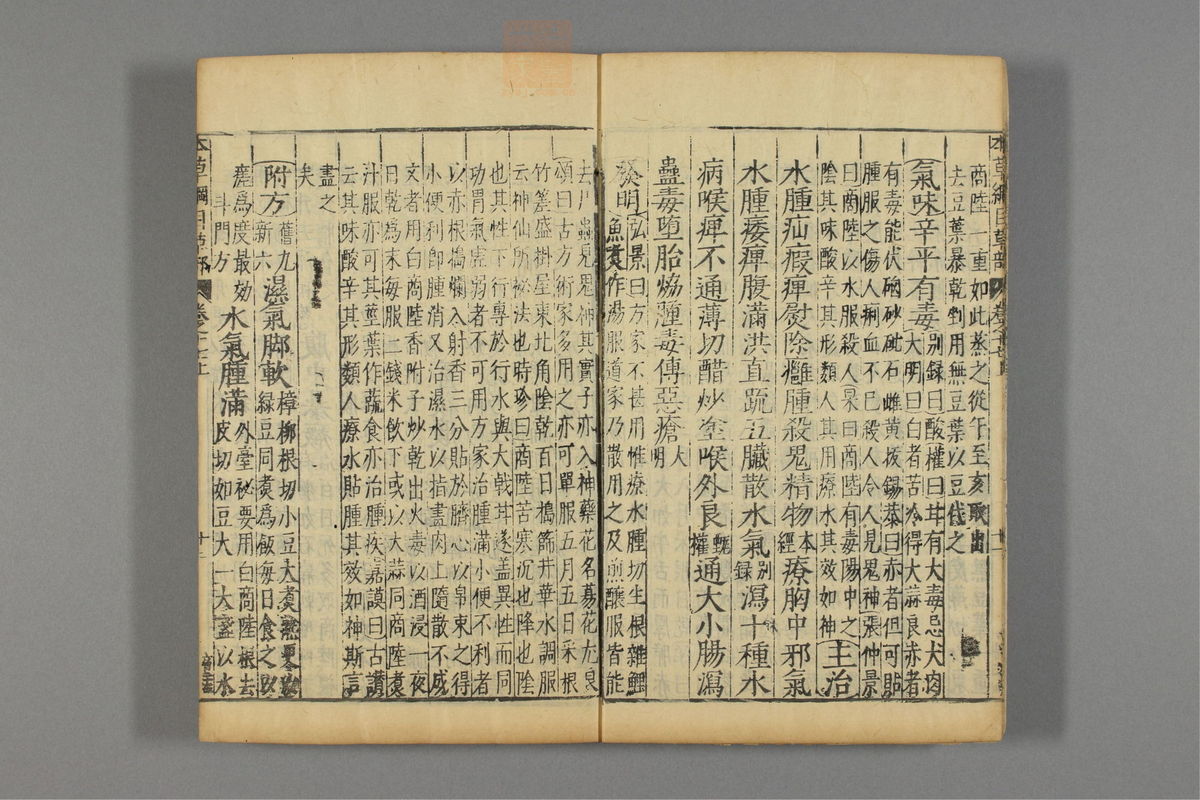 商陸一重如此蒸之從午至亥取出
去豆葉暴乾剉用無豆葉以豆代之
氣味辛平有毒別録曰酸權曰甘有大毒忌犬肉
大明曰白者苦冷得大蒜良赤者
有毒能伏硇砂砒石雌黄拔錫恭曰赤者但可貼
腫服之傷人痢血不已殺人令人見鬼神張仲景
曰商陸以水服殺人杲曰商陸有毒陽中之
陰其味酸辛其形類人其用療水其效如神
主治
水腫疝瘕痺熨除癰腫殺鬼精物本經療胸中邪氣
水腫痿痺腹滿洪直疏五臟散水氣別録瀉十種水
病喉痺不通薄切醋炒塗喉外良甄權通大小腸瀉
蠱毒堕胎㷌腫毒傅惡瘡大明
發明弘景曰方家不甚用惟療水腫切生根雜鯉
魚煑作湯服道家乃散用之及煎釀服皆能
去尸蟲見鬼神其實子亦入神藥花名䔰花尤良
頌曰古方術家多用之亦可單服五月五日采根
竹筐盛掛屋東北角陰乾百日搗篩井華水調服
云神仙所祕法也時珍曰商陸苦寒沉也降也陰
也其性下行專於行水與大戟甘遂盖異性而同
功胃氣虚弱者不可用方家治腫滿小便不利者
以赤根搗爛入射香三分貼於臍心以帛束之得
小便利即腫消又治濕水以指畫肉上隨散不成
文者用白商陸香附子炒乾出火毒以酒浸一夜
日乾為末每服二錢米飲下或以大蒜同商陸煑
汁服亦可其莖葉作蔬食亦治腫疾嘉謨曰古讚
云其味酸辛其形類人療水貼腫其效如神斯言
盡之
矣
附方舊九新六濕氣脚軟樟柳根切小豆大煑熟更以
緑豆同煑為飯每日食之以
瘥為度最効
斗門方
水氣腫滿外臺祕要用白商陸根去
皮切如豆大一大盞以水